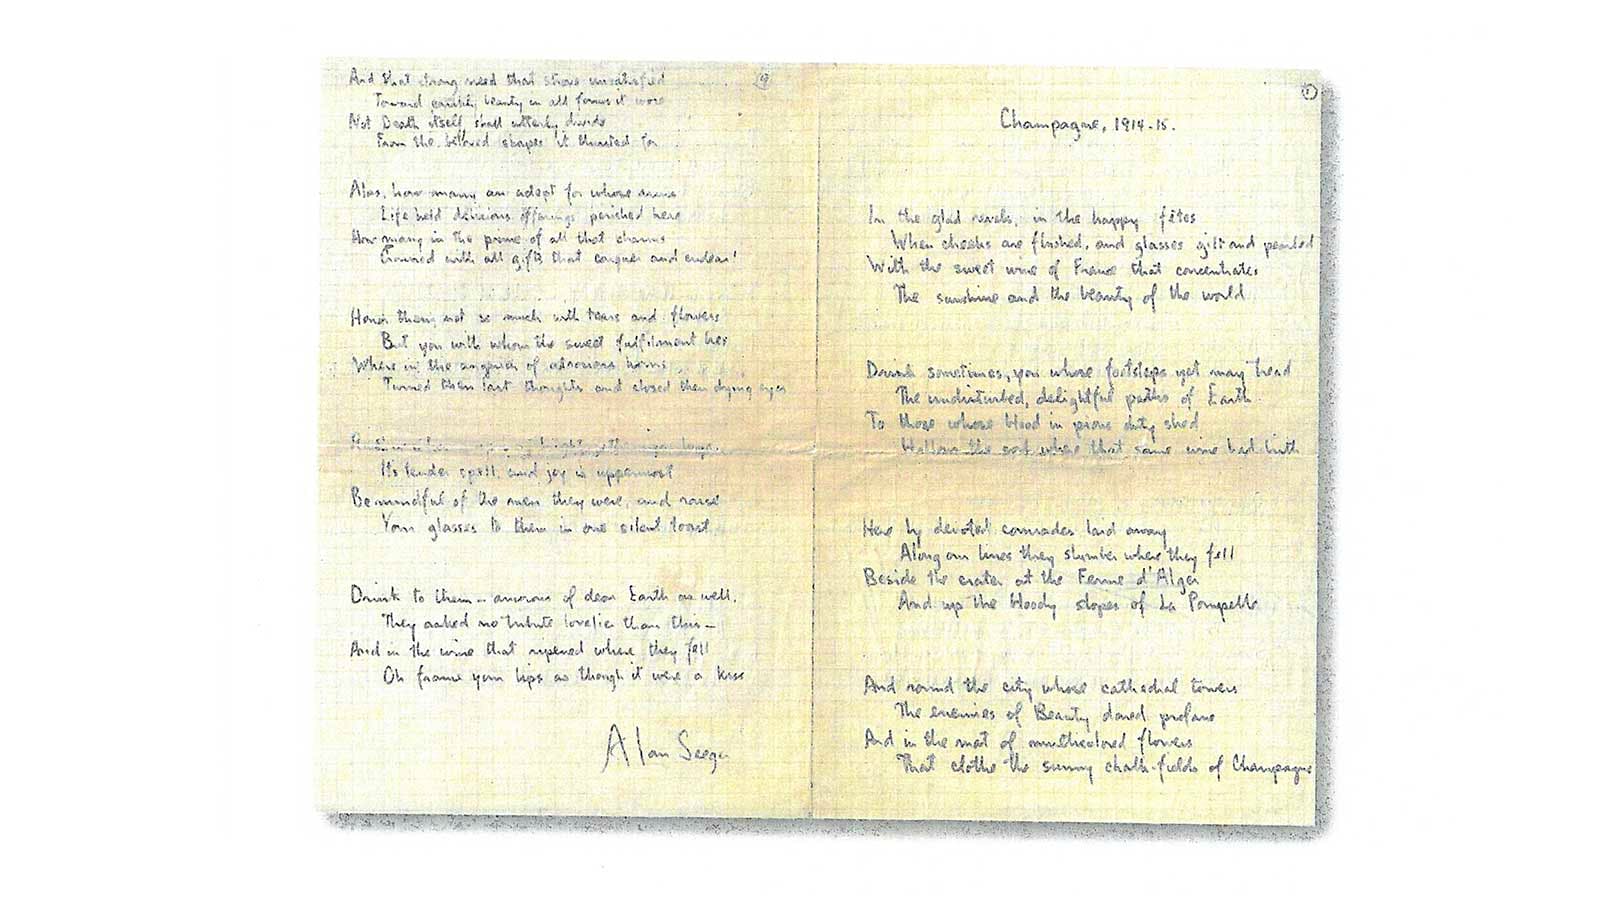 9
And that strong need that strove unsatisfied
Toward earthly beauty in all forms it wore
Not Death itself shall utterly divide
From the beloved shapes it thirsted for
Alas, how many an adept for whose arms
Life held delicious offerings perished here
How many in the prime of all that charms
Crowned with all gifts that conquer and endear!
Honor them not so much with tears and flowers
But you with whom the sweet fulfilment lies
Where in the anguish of atrocious hours
Turned their last thoughts and closed their dying eyes
bright gatherings lays,
Its tender spell, and joy is uppermost
Be mindful of the men they were, and raise
Your glasses to them in one silent toast.
Drink to them — amorous of dear Earth as well,
They asked no tribute lovelier than this —
And in the wine that ripened where they fell
Oh frame your lips as though it were a kiss
Alan Seeger
1
Champagne, 1914-15.
In the glad revels, in the happy fêtes
When cheeks are flushed, and glasses gilt and pearled
With the sweet wine of France that concentrates
The sunshine and the beauty of the world
Drink sometimes, you whose footsteps yet may tread
The undisturbed, delightful paths of Earth
To those whose blood in pious duty shed
Hallows the soil where that same wine had birth
Here by devoted comrades laid away
Along our lines they slumber where they fell
Beside the crater at the Ferme d'Alger
And up the bloody slopes of La Pompelle
And round the city whose cathedral towers
The enemies of Beauty dared profane
And in the mat of multicolored flowers
That clothe the sunny chalk-fields of Champagne